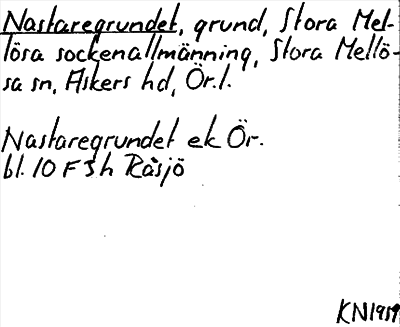 Nastaregrundet, grund, Stora Mel-
lösa sockenallmänning, Stora Mellö-
sa sn, Askers hd, Ör.l.
Nastaregrundet ek Ör.
bl. 10 F 3 h Råsjö
KN 1959